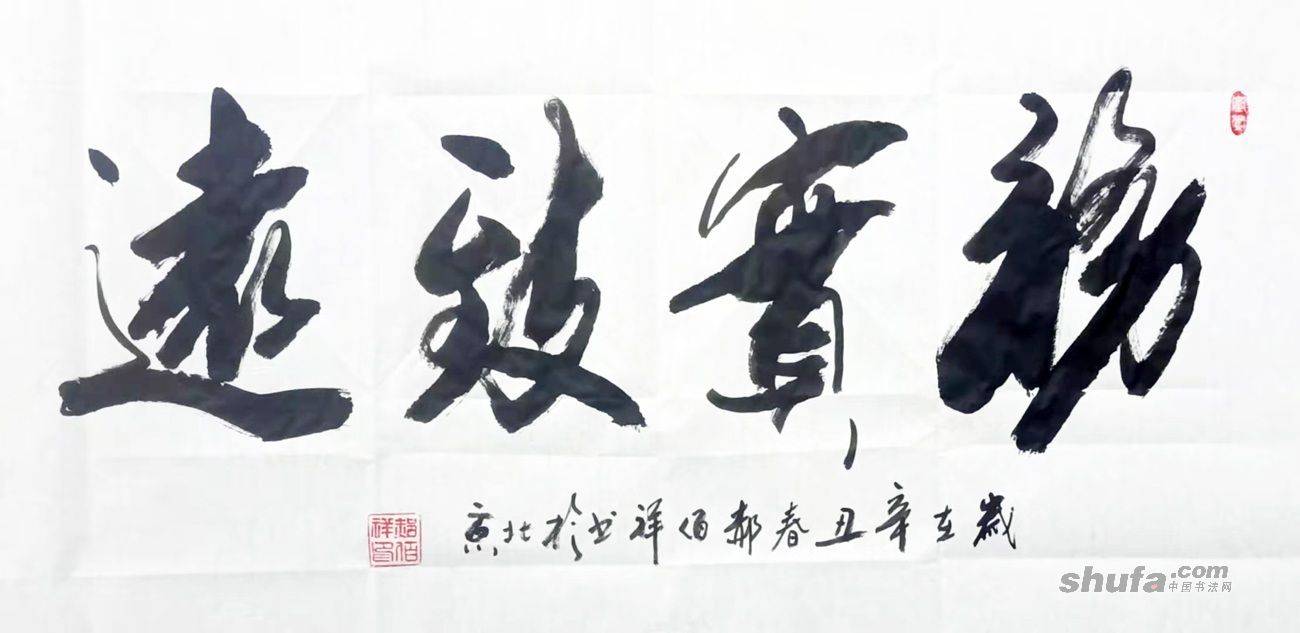 務實致遠
歲在辛丑春郝佰祥书於北京
郝佰祥印
shufa.com
中国书法网